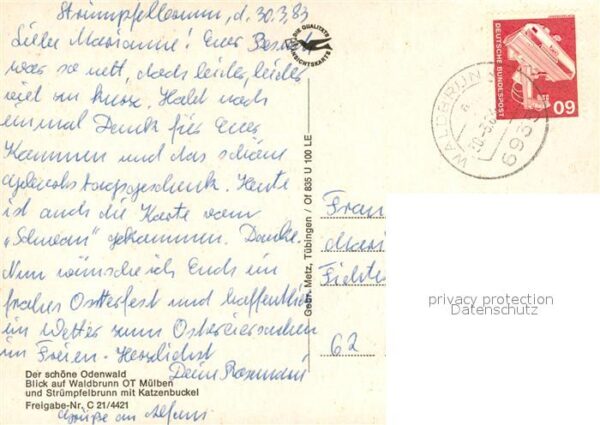 Strümpfelbrunn, d. 30.3.83
Liebe Marianne! Euer Besuch
war so nett, doch leider, leider
viel zu kurz. Hald noch
einmal Dank für Euer
Kommen und das schöne
Geburtstagsgeschenk. Heute
ist auch die Karte vom
„Schwan" gekommen. Danke.
Nun wünsche ich Euch ein
frohes Osterfest und hoffentlich
ein Wetter zum Ostereiersuchen
im Freien. Herzlichst
Deine Rosmarie
Grüße an
DIE QUALITÄTS
ANSICHTSKARTE
Gebr. Metz, Tübingen / Of 835 U 100 LE
DEUTSCHE BUNDESPOST
60
WALDBRUNN
693
Frau
Mari
Fichten
62
privacy protection
Datenschutz
Der schöne Odenwald
Blick auf Waldbrunn OT Mülben
und Strümpfelbrunn mit Katzenbuckel
Freigabe-Nr. C 21/4421